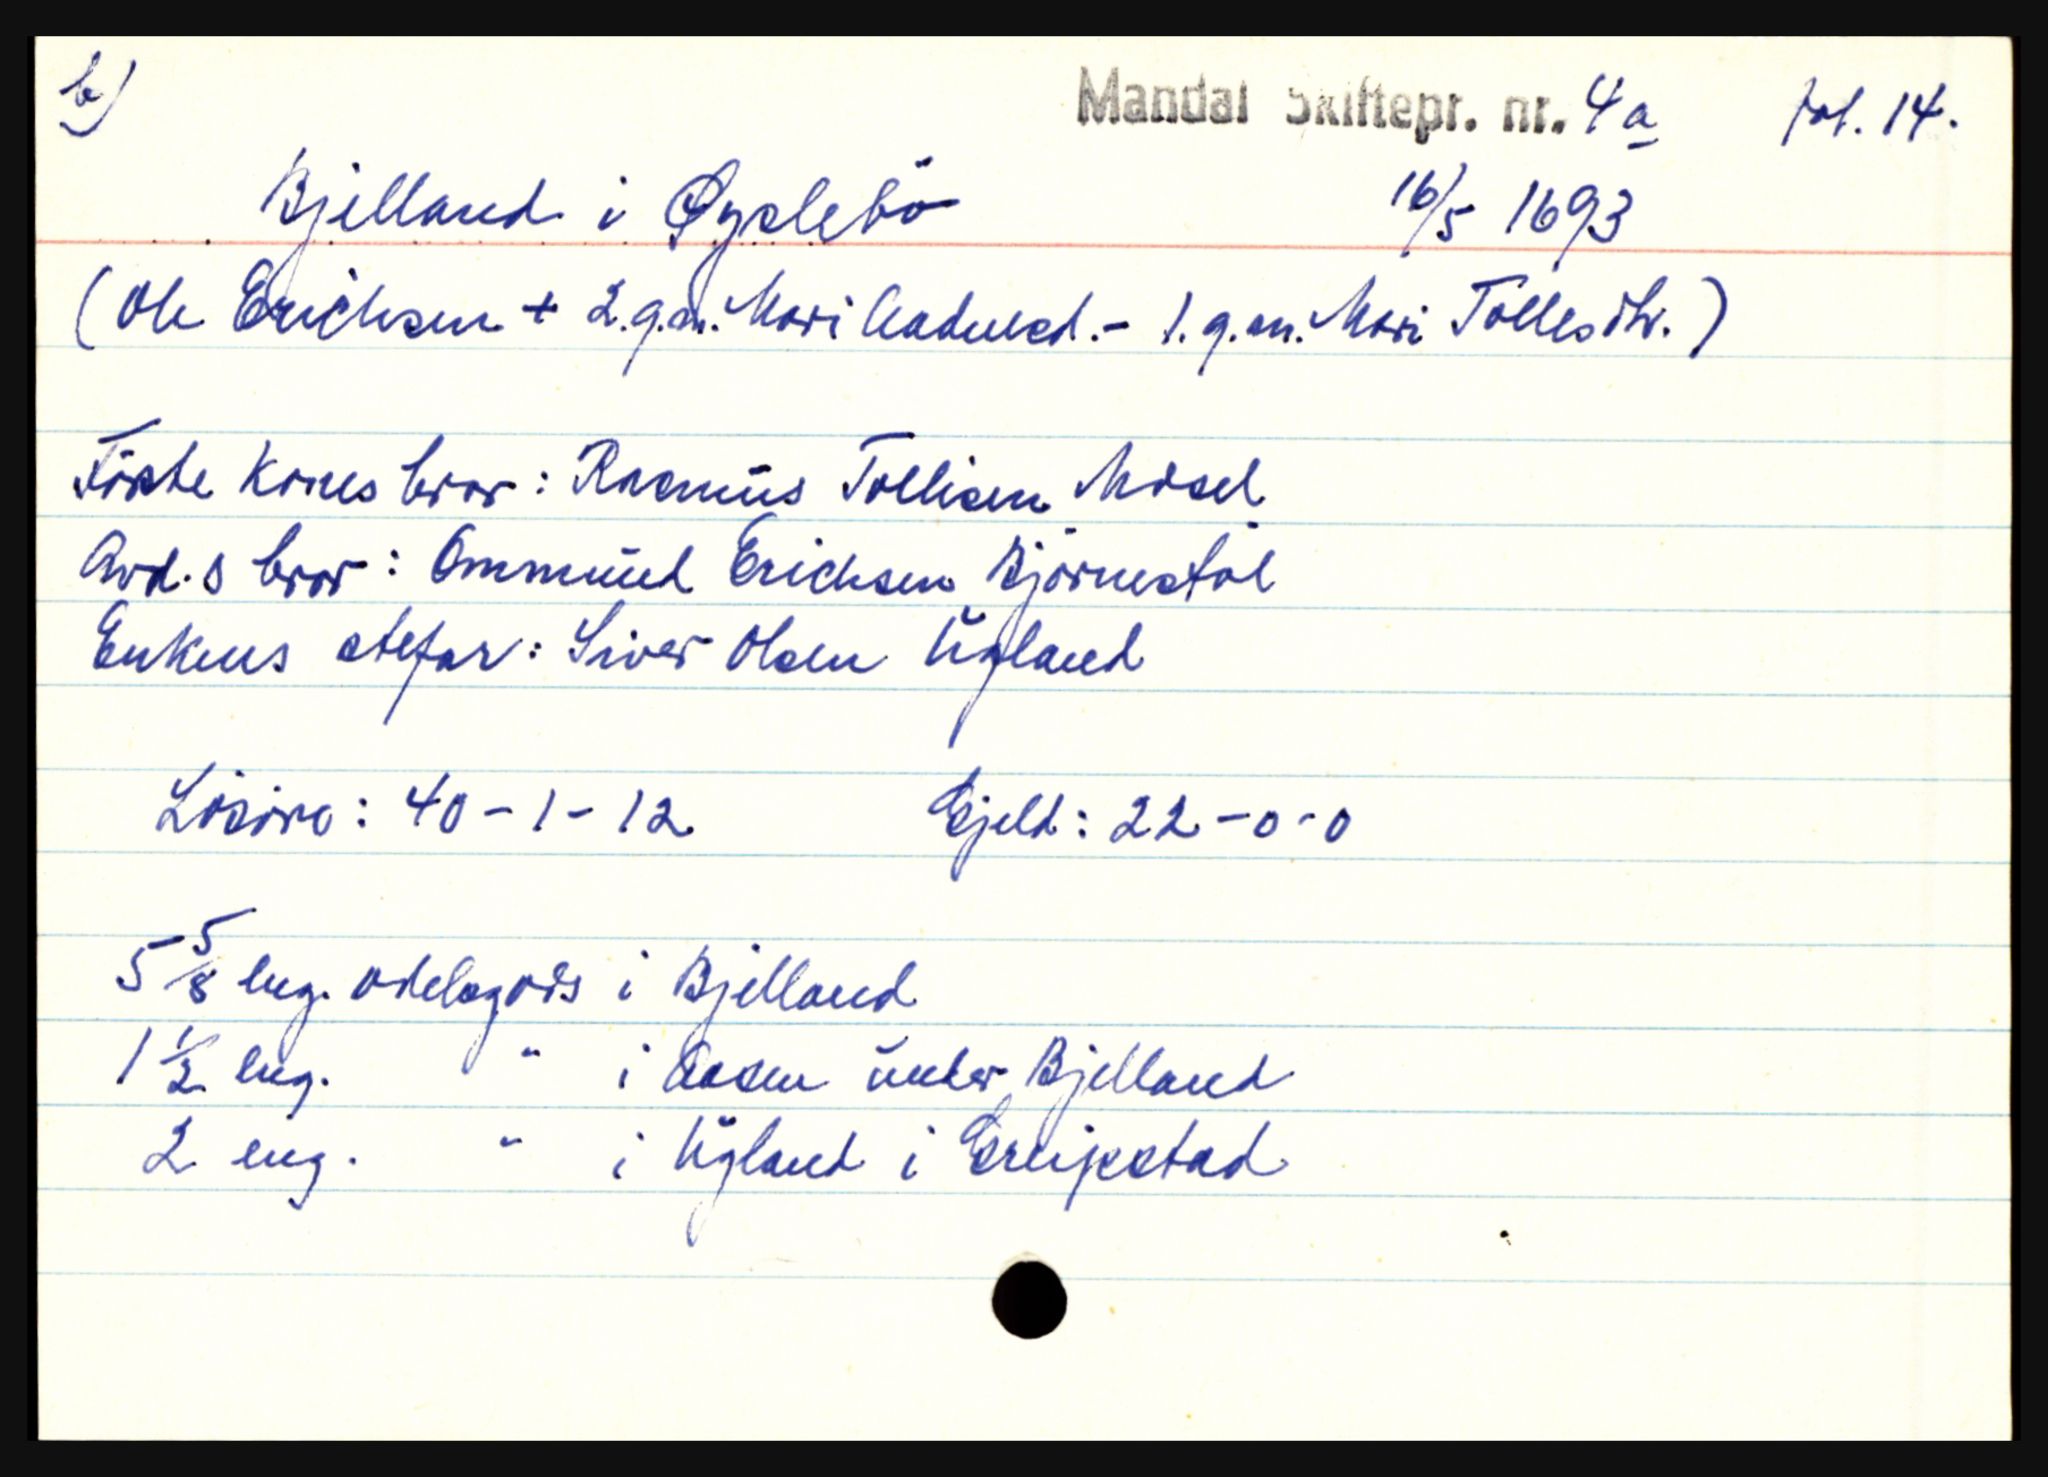 b)
Mandal Skiftepr. nr. 4a fol. 14.
Bjelland i Øyslebö 16/5 1693
(Ole Erichsen + 2. g.m. Mari Aadnesd. - 1. g.m. Mari Tollesdtr.)
Förste kones bror: Rasmus Tollisen Mösel
Avd.s bror: Ommund Erichsen Björnestøl
Enkens stefar: Siver Olsen Ugland
Lösöre: 40 - 1 - 12 Gjeld: 22 - 0 - 0
5 5/8 eng. odelsgods i Bjelland
1 1/2 eng. " i Aasen under Bjelland
2 eng. " i Ugland i Greipstad